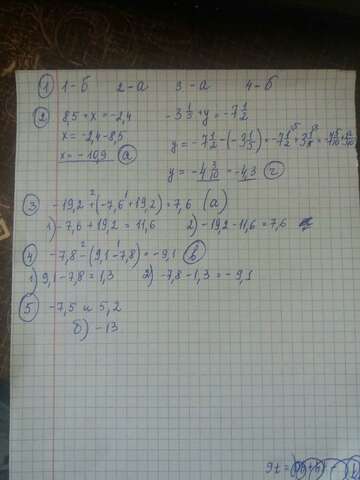 ① 1-б 2-а 3-а 4-б
② 8,5+x=-2,4 -3 1/3+y=-7 1/2
x=-2,4-8,5 y=-7 1/2-(-3 1/5)=-7 1/2+3 1/5=
x=-10,9 а y=-4 3/10=-4,3 г
③ -19,2-(-7,6+19,2)=7,6 (а)
1)-7,6+19,2=11,6 2)-19,2-11,6=7,6
④ -7,8-(9,1-7,8)=-9,1 в
1) 9,1-7,8=1,3 2) -7,8-1,3=-9,1
⑤ -7,5 и 5,2
б) -13